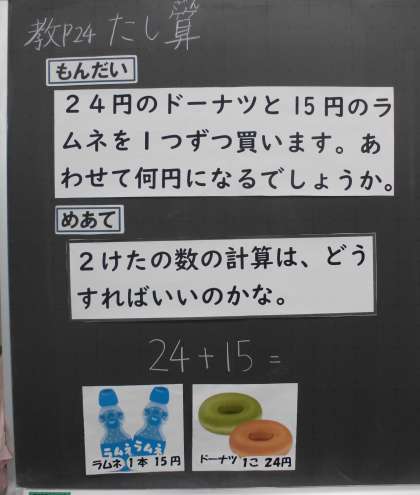 教P24 たし算
もんだい
24円のドーナツと15円のラ
ムネを1つずつ買います。あ
わせて何円になるでしょうか。
めあて
2けたの数の計算は、どう
すればいいのかな。
24+15=
ラムネ ラムネ
ラムネ 1本 15円
ドーナツ 1こ 24円